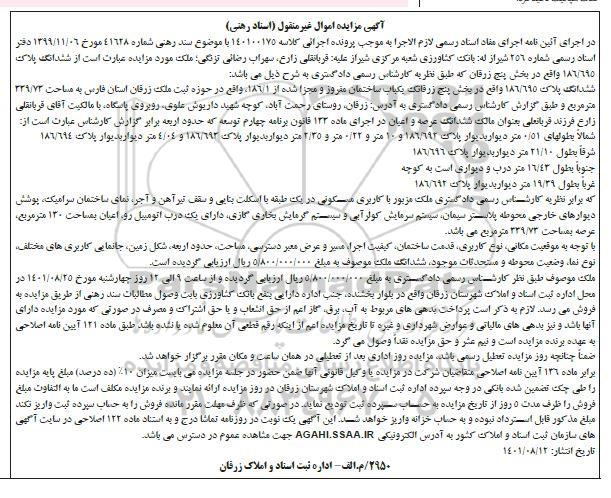 آگهی مزایده اموال غیرمنقول (اسناد رهنی)
در اجرای آئین نامه اجرای مفاد اسناد رسمی لازم الاجرا به موجب پرونده اجرائی کلاسه ۱۴۰۱۰۰۱۷۵ با موضوع سند رهنی شماره ۴۱۶۲۸ مورخ ۱۳۹۹/۱۱/۰۶ دفتر
اسناد رسمی شماره ۲۵۶ شیراز له: بانک کشاورزی شعبه مرکزی شیراز علیه: قربانقلی زارع، سهراب رضائی تزنگی: ملک مورد مزایده عبارت است از ششدانگ پلاک
۱۸۶/۶۹۵ واقع در بخش پنج زرقان که طبق نظریه کارشناس رسمی دادگستری به شرح ذیل می باشد:
ششدانگ پلاک ۱۸۶/۶۹۵ واقع در بخش پنج زرقانک یکباب ساختمان مفروز و مجزا شده از ۱۸۶/۱، واقع در حوزه ثبت ملک زرقان استان فارس به مساحت ۳۳۹/۷۳
مترمربع و طبق گزارش کارشناس رسمی دادگستری به آدرس: زرقان، روستای رحمت آباد، کوچه شهید داریوش علوی، روبروی باسگاه، با مالکیت آقای قربانقلی
زارع فرزند قربانعلی بعنوان مالک ششدانگ عرصه و اعیان در اجرای ماده ۱۳۳ قانون برنامه چهارم توسعه که حدود اربعه برابر گزارش کارشناس عبارت است از:
شمالاً بطولهای ۰/۵۱ متر دیواربدیوار پلاک ۱۸۶/۶۹۲ و ۱۰ متر و ۰/۲۲ متر و ۲/۳۵ متر دیواربدیوار پلاک ۱۸۶/۶۹۳ و ۴/۰۴ متر دیواربدیوار پلاک ۱۸۶/۶۹۴
شرقاً بطول ۲۱/۱۰ متر دیواربدیوار پلاک ۱۸۶/۶۹۶
جنوباً بطول ۱۶/۴۳ متر درب و دیواری است به کوچه
غرباً بطول ۱۹/۳۹ متر دیواربدیوار پلاک ۱۸۶/۶۹۲
که برابر نظریه کارشناس رسمی دادگستری ملک مزبور با کاربری مسکونی در یک طبقه با اسکلت بنایی و سقف تیرآهن و آجر، نمای ساختمان سرامیک، پوشش
دیوارهای خارجی محوطه پلاستر سیمان، سیستم سرمایش کولرآبی و سیستم گرمایش بخاری گازی، دارای یک درب اتومبیل رو، اعیان بمساحت ۱۳۰ مترمربع،
عرصه بمساحت ۳۳۹/۷۳ مترمربع می باشد.
با توجه به موقعیت مکانی، نوع کاربری، قدمت ساختمان، کیفیت اجرا، مسیر و عرض معبر دسترسی، مساحت، حدود اربعه، شکل زمین، جانمایی کاربری های مختلف،
نوع نما، وضعیت محوطه و مستحدثات موجود، ششدانگ ملک موصوف به مبلغ ۵/۸۰۰/۰۰۰/۰۰۰ ریال ارزیابی گردیده است.
ملک موصوف طبق نظر کارشناس رسمی دادگستری به مبلغ ۵/۸۰۰/۰۰۰/۰۰۰ ریال ارزیابی گردیده و از ساعت ۹ الی ۱۲ روز چهارشنبه مورخ ۱۴۰۱/۰۸/۲۵ در
محل اداره ثبت اسناد و املاک شهرستان زرقان واقع در بلوار بخشنده، جنب اداره دارایی بنفع بانک کشاورزی بابت وصول مطالبات سند رهنی از طریق مزایده به
فروش می رسد. لازم به ذکر است پرداخت بدهی های مربوطه به آب، برق، گاز اعم از حق انشعاب و یا حق اشتراک و مصرف در صورتی که مورد مزایده دارای
آنها باشد و نیز بدهی های مالیاتی و عوارض شهرداری و غیره تا تاریخ مزایده اعم از اینکه رقم قطعی آن معلوم شده یا نشده باشد طبق ماده ۱۲۱ آیین نامه اصلاحی
به عهده برنده مزایده است و نیم عشر و حق مزایده نقداً وصول می گردد.
ضمناً چنانچه روز مزایده تعطیل رسمی باشد، مزایده روز اداری بعد از تعطیلی در همان ساعت و مکان مقرر برگزار خواهد شد.
برابر ماده ۱۳۶ آیین نامه اصلاحی متقاضیان شرکت در مزایده یا وکیل قانونی آنها ضمن حضور در جلسه مزایده می بایست میزان ۱۰٪ (ده درصد) مبلغ پایه مزایده
را طی چک تضمین شده بانکی در وجه سپرده اداره ثبت اسناد و املاک شهرستان زرقان در روز مزایده ارائه نمایند و برنده مزایده مکلف است ما به التفاوت مبلغ
فروش را ظرف مدت ۵ روز از تاریخ مزایده به حساب سپرده ثبت تودیع نماید. در صورتی که ظرف مهلت مقرر مانده فروش را به حساب سپرده ثبت واریز نکند
مبلغ مذکور قابل استرداد نبوده و به حساب خزانه واریز خواهد شد. این آگهی یک نوبت در روزنامه تماشا درج و به استناد ماده ۱۲۲ اصلاحی در سایت آگهی
های سازمان ثبت اسناد و املاک کشور به آدرس الکترونیکی AGAHI.SSAA.IR جهت مشاهده عموم در دسترس می باشد.
تاریخ انتشار: ۱۴۰۱/۰۸/۱۲
۲۹۵۰/م.الف - اداره ثبت اسناد و املاک زرقان